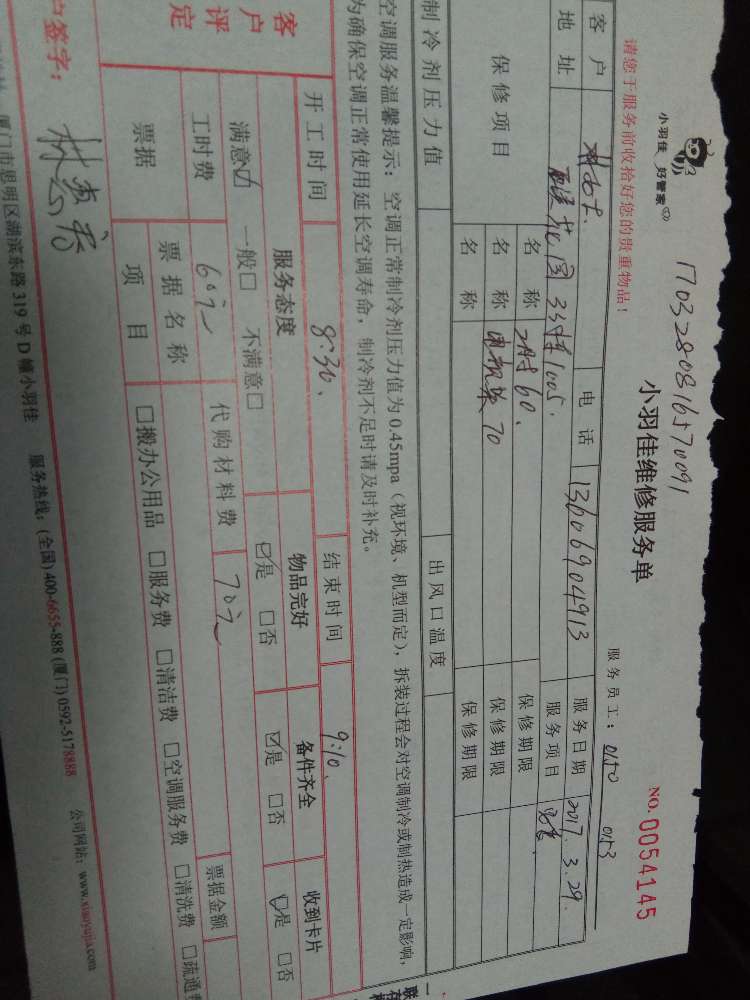 小羽佳 好管家
1703280816570091
小羽佳维修服务单
NO.0054145
请您于服务前收拾好您的贵重物品！
服务员工：0150 0153
客户 电话 13606904913 服务日期 2017.3.29.
地址 花园33栋1005. 服务项目
保修项目 名称 60. 保修期限
名称 70 保修期限
名称 保修期限
制冷剂压力值 出风口温度
空调服务温馨提示：空调正常制冷剂压力值为0.45mpa（视环境、机型而定），拆装过程会对空调制冷或制热造成一定影响，
为确保空调正常使用延长空调寿命，制冷剂不足时请及时补充。
开工时间 8:30. 结束时间 9:10.
客户评定 服务态度 物品完好 备件齐全 收到卡片
满意☑ 一般□ 不满意□ ☑是 □否 ☑是 □否 ☑是 □否
工时费 60元 代购材料费 70元
票据 票据名称 票据金额
项目 □搬办公用品 □服务费 □清洁费 □空调服务费 □清洗费 □疏通费
户签字：
厦门市思明区湖滨东路319号D幢小羽佳 服务热线：(全国)400-6655-888 (厦门)0592-5178888 公司网站：www.xiaoyujia.com
一联